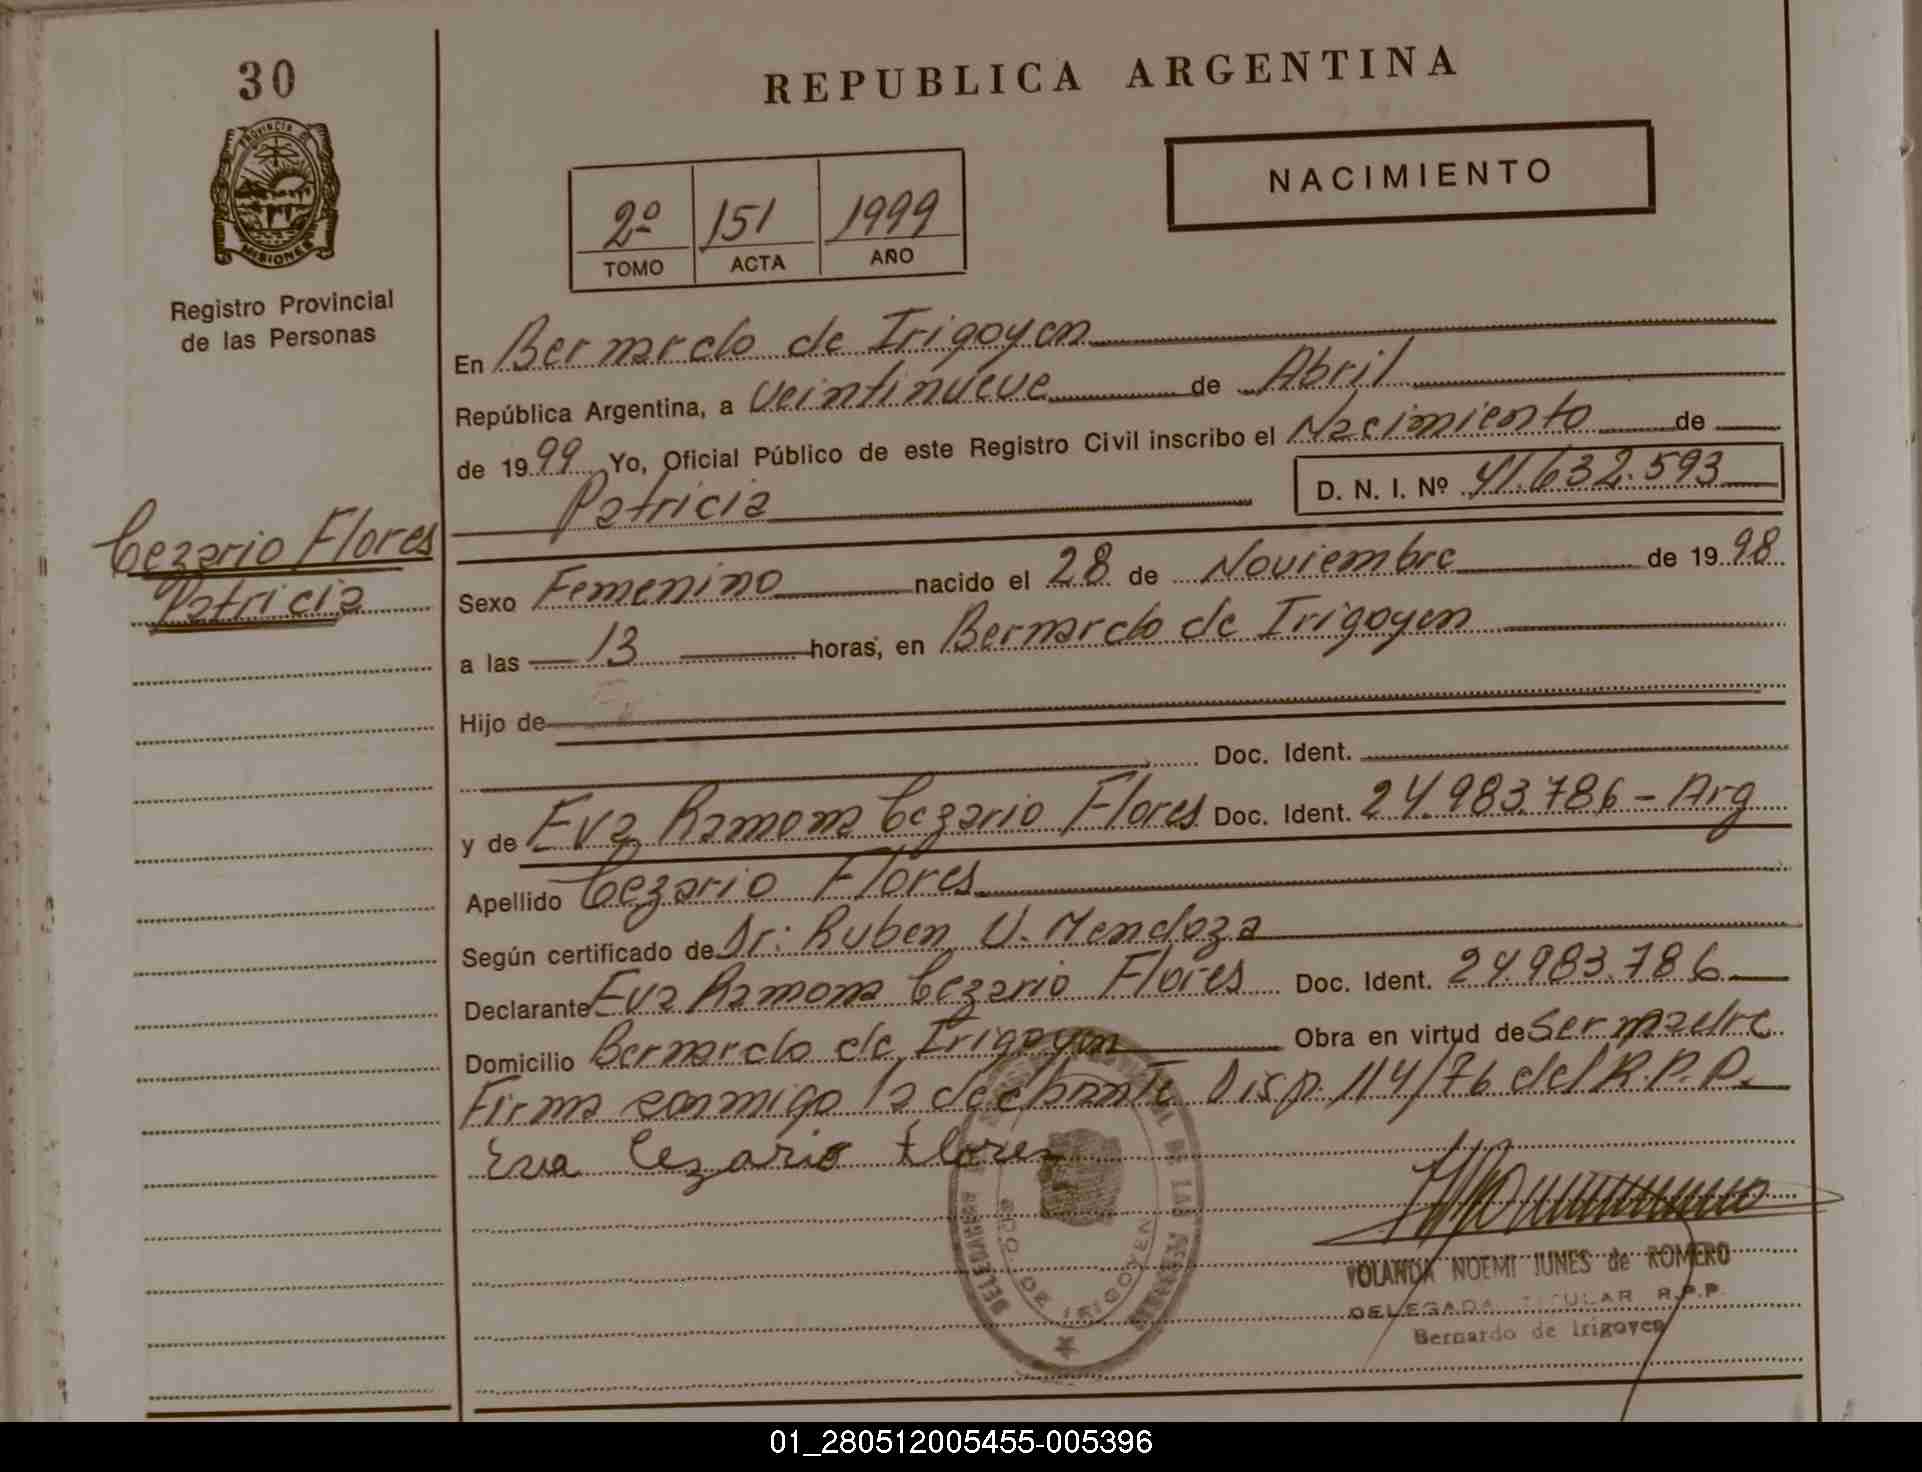 30
PROVINCIA DE
MISIONES
Registro Provincial
de las Personas
Cezario Flores
Patricia
REPUBLICA ARGENTINA
2º 151 1999
TOMO ACTA AÑO
NACIMIENTO
En Bernardo de Irigoyen
República Argentina, a Veintinueve de Abril
de 1999 Yo, Oficial Público de este Registro Civil inscribo el Nacimiento de
Patricia D. N. I. Nº 41.632.593
Sexo Femenino nacido el 28 de Noviembre de 1998
a las 13 horas, en Bernardo de Irigoyen
Hijo de
Doc. Ident.
y de Eva Ramona Cezario Flores Doc. Ident. 24.983.786 - Arg
Apellido Cezario Flores
Según certificado de Dr: Ruben U. Mendoza
Declarante Eva Ramona Cezario Flores Doc. Ident. 24983.786
Domicilio Bernardo de Irigoyen Obra en virtud de Ser madre
Firma conmigo la declarante Disp. 114/76 del R.P.P.
Eva Cezario Flores
DE LAS
BDO. DE IRIGOYEN
YOLANDA NOEMI JUNES de ROMERO
DELEGADA TITULAR R.P.P.
Bernardo de Irigoyen
01_280512005455-005396